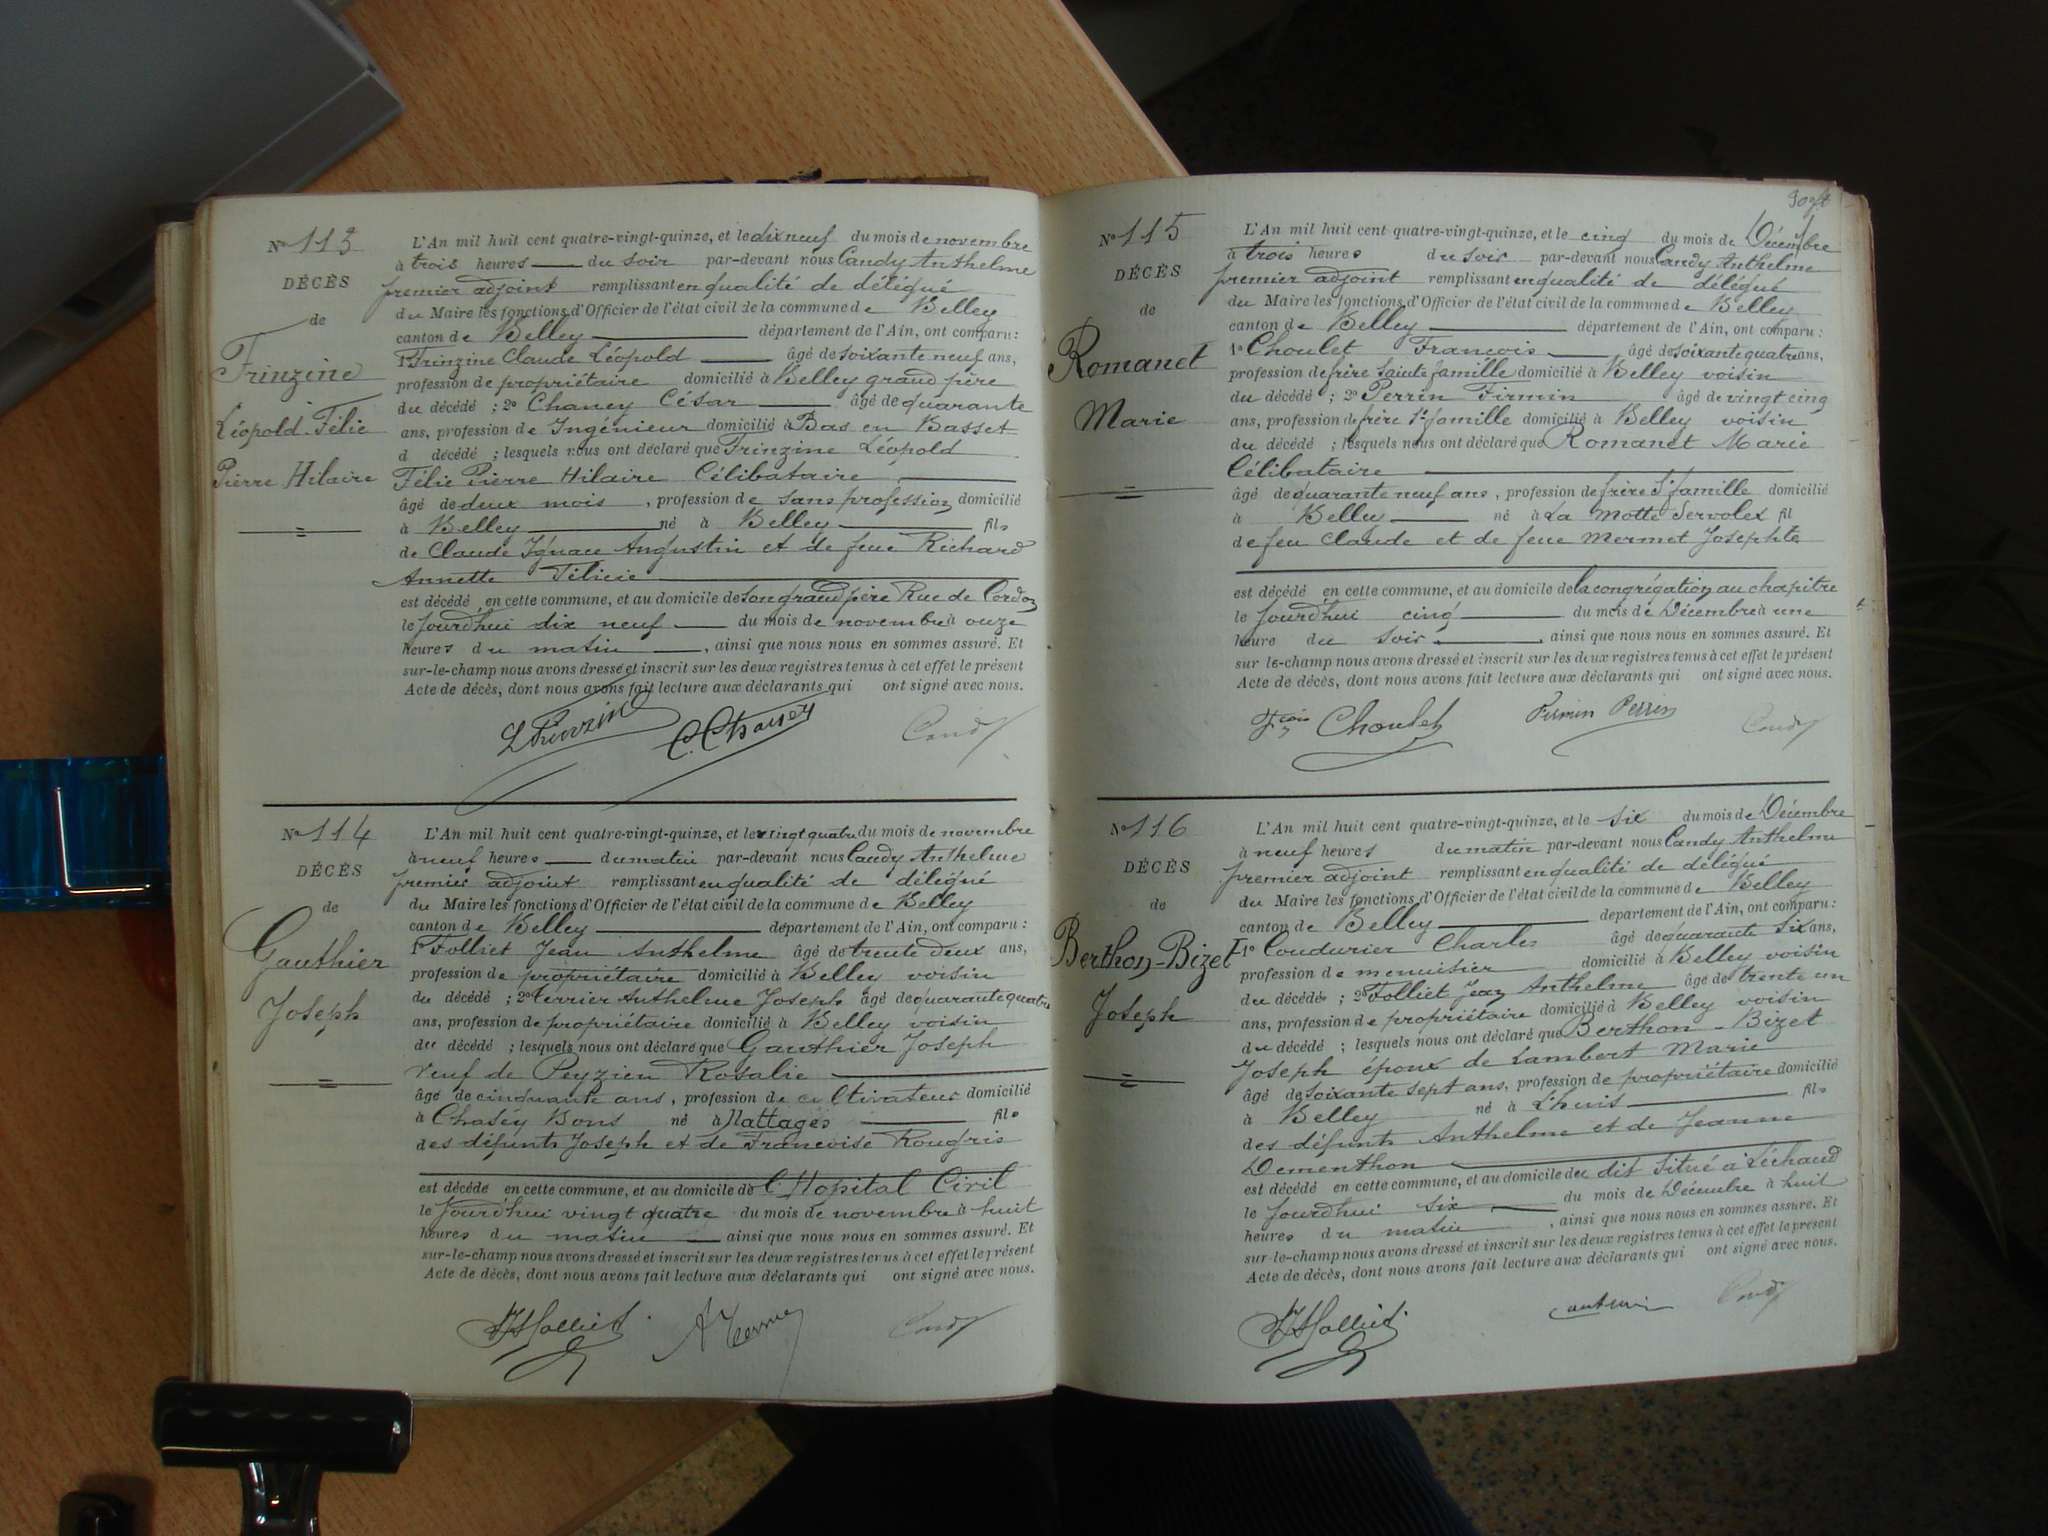 No 113
DÉCÈS
de
Frinzine
Léopold Félic
Pierre Hilaire
L'An mil huit cent quatre-vingt-quinze, et le dix neuf du mois de novembre
à trois heures du soir par-devant nous Candy Anthelme
premier adjoint remplissant en qualité de délégué
du Maire les fonctions d'Officier de l'état civil de la commune de Belley
canton de Belley département de l'Ain, ont comparu :
1o Frinzine Claude Léopold âgé de soixante neuf ans,
profession de propriétaire domicilié à Belley grand père
du décédé ; 2o Chaney César âgé de quarante
ans, profession de Ingénieur domicilié à Bas en Basset
d décédé ; lesquels nous ont déclaré que Frinzine Léopold
Félic Pierre Hilaire Célibataire
âgé de deux mois , profession de sans profession domicilié
à Belley né à Belley fils
de Claude Ignace Augustin et de feue Richard
Annette Félicie
est décédé en cette commune, et au domicile de son grand père Rue de Cordon
le jourd'hui dix neuf du mois de novembre à onze
heures du matin , ainsi que nous nous en sommes assuré. Et
sur-le-champ nous avons dressé et inscrit sur les deux registres tenus à cet effet le présent
Acte de décès, dont nous avons fait lecture aux déclarants qui ont signé avec nous.
L Frinzine C. Chaney Candy
No 114
DÉCÈS
de
Gauthier
Joseph
L'An mil huit cent quatre-vingt-quinze, et le vingt quatre du mois de novembre
à neuf heures du matin par-devant nous Candy Anthelme
premier adjoint remplissant en qualité de délégué
du Maire les fonctions d'Officier de l'état civil de la commune de Belley
canton de Belley département de l'Ain, ont comparu :
1o Folliet Jean Anthelme âgé de trente deux ans,
profession de propriétaire domicilié à Belley voisin
du décédé ; 2o Terrier Anthelme Joseph âgé de quarante quatre
ans, profession de propriétaire domicilié à Belley voisin
du décédé ; lesquels nous ont déclaré que Gauthier Joseph
veuf de Peyzieu Rosalie
âgé de cinquante ans , profession de cultivateur domicilié
à Chaséy Bons né à Nattages fils
des défunts Joseph et de Francoise Rougris
est décédé en cette commune, et au domicile de l'Hopital Civil
le jourd'hui vingt quatre du mois de novembre à huit
heures du matin ainsi que nous nous en sommes assuré. Et
sur-le-champ nous avons dressé et inscrit sur les deux registres tenus à cet effet le présent
Acte de décès, dont nous avons fait lecture aux déclarants qui ont signé avec nous.
JA Folliet A Terrier Candy
No 115
DÉCÈS
de
Romanet
Marie
L'An mil huit cent quatre-vingt-quinze, et le cinq du mois de Décembre
à trois heures du soir par-devant nous Candy Anthelme
premier adjoint remplissant en qualité de délégué
du Maire les fonctions d'Officier de l'état civil de la commune de Belley
canton de Belley département de l'Ain, ont comparu :
1o Choulet Francois âgé de soixante quatre ans,
profession de frère Sainte famille domicilié à Belley voisin
du décédé ; 2o Perrin Firmin âgé de vingt cinq
ans, profession de frère Ste famille domicilié à Belley voisin
du décédé ; lesquels nous ont déclaré que Romanet Marie
Célibataire
âgé de quarante neuf ans , profession de frère Ste famille domicilié
à Belley né à La Motte Servolex fil
de feu Claude et de feue Mermet Josephte
est décédé en cette commune, et au domicile de la congrégation au chapitre
le jourd'hui cinq du mois de Décembre à une
heure du soir , ainsi que nous nous en sommes assuré. Et
sur le-champ nous avons dressé et inscrit sur les deux registres tenus à cet effet le présent
Acte de décès, dont nous avons fait lecture aux déclarants qui ont signé avec nous.
Fçois Choulet Firmin Perrin Candy
No 116
DÉCÈS
de
Berthon-Bizet
Joseph
L'An mil huit cent quatre-vingt-quinze, et le six du mois de Décembre
à neuf heures du matin par-devant nous Candy Anthelme
premier adjoint remplissant en qualité de délégué
du Maire les fonctions d'Officier de l'état civil de la commune de Belley
canton de Belley département de l'Ain, ont comparu :
1o Coudurier Charles âgé de quarante six ans,
profession de menuisier domicilié à Belley voisin
du décédé ; 2o Folliet Jean Anthelme âgé de trente un
ans, profession de propriétaire domicilié à Belley voisin
du décédé ; lesquels nous ont déclaré que Berthon-Bizet
Joseph époux de Lambert Marie
âgé de soixante sept ans, profession de propriétaire domicilié
à Belley né à L'huis fils
des défunts Anthelme et de Jeanne
Dementhon
est décédé en cette commune, et au domicile du dit situé à Léchaud
le jourd'hui six du mois de Décembre à huit
heures du matin , ainsi que nous nous en sommes assuré. Et
sur-le-champ nous avons dressé et inscrit sur les deux registres tenus à cet effet le présent
Acte de décès, dont nous avons fait lecture aux déclarants qui ont signé avec nous.
JA Folliet Candy